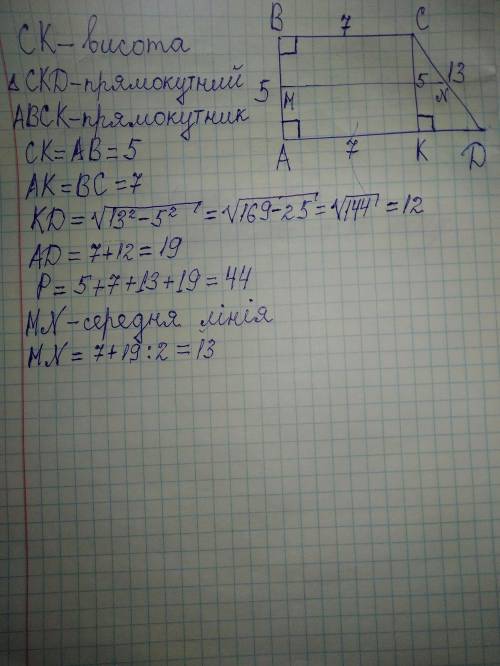 CK – висота
△CKD – прямокутний
ABCK – прямокутник
CK = AB = 5
AK = BC = 7
KD = √13² – 5² = √169 – 25 = √144 = 12
AD = 7 + 12 = 19
P = 5 + 7 + 13 + 19 = 44
MN – середня лінія
MN = 7 + 19 : 2 = 13
B 7 C
5 M 5 N 13
A 7 K D